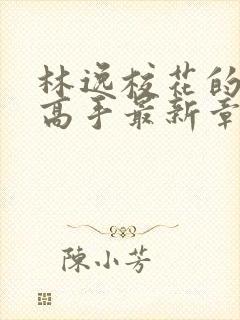 林逸校花的
高手最新章
陳小芳